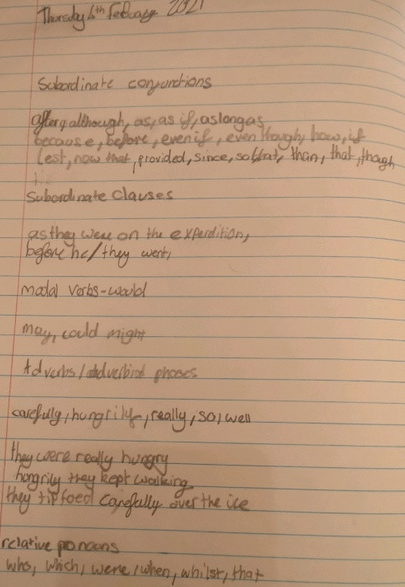 Thursday 4th February 2021
Subordinate conjunctions
after, although, as, as if, aslongas
because, before, even if, even though, how, if
lest, now that, provided, since, so that, than, that, though
Subordinate Clauses
as they were on the experdition,
before he/they went,
modal verbs-would
may, could might
Adverbs/adverbial phases
carefully, hungrily, really, so, well
they were really hungry
hongrily they kept walking.
they tiptoed carefully over the ice
relative ponouns
who, which, were, when, whilst, that